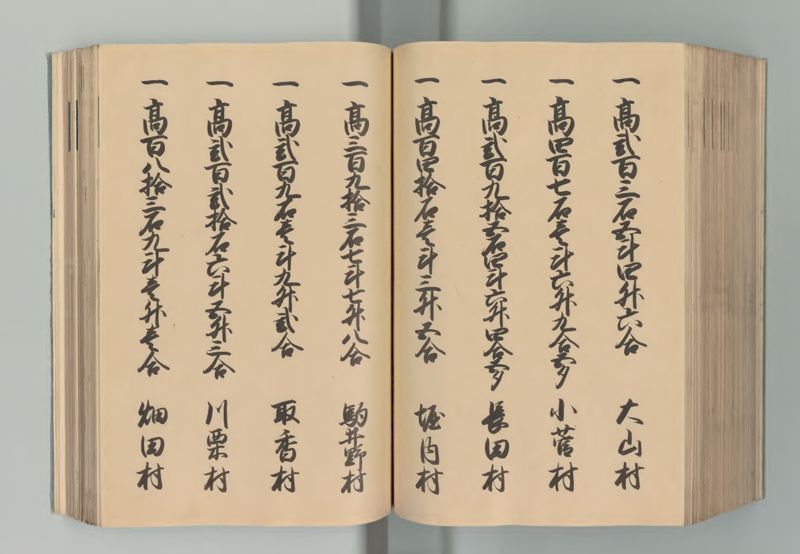 一高弐百三石五斗四升六合 大山村
一高四百七石壱斗六升九合夛 小菅村
一高弐百九拾五石四斗六升四合夛 長田村
一高百四拾石壱斗三升五合 堀内村
一高三百九拾三石七斗七升八合 駒井野村
一高弐百九石壱斗九升弐合 取香村
一高弐百弐拾石六斗五升三合 川栗村
一高百八拾三石九斗壱升壱合 畑田村